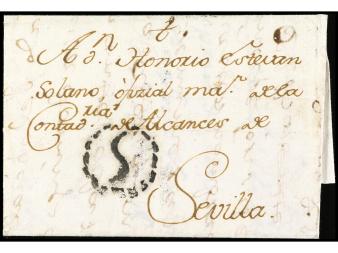 A dⁿ Honorio Estevan
Solano ofizial maʳ. de la
Contadʳⁱᵃ de Alcances de
S
Sevilla.